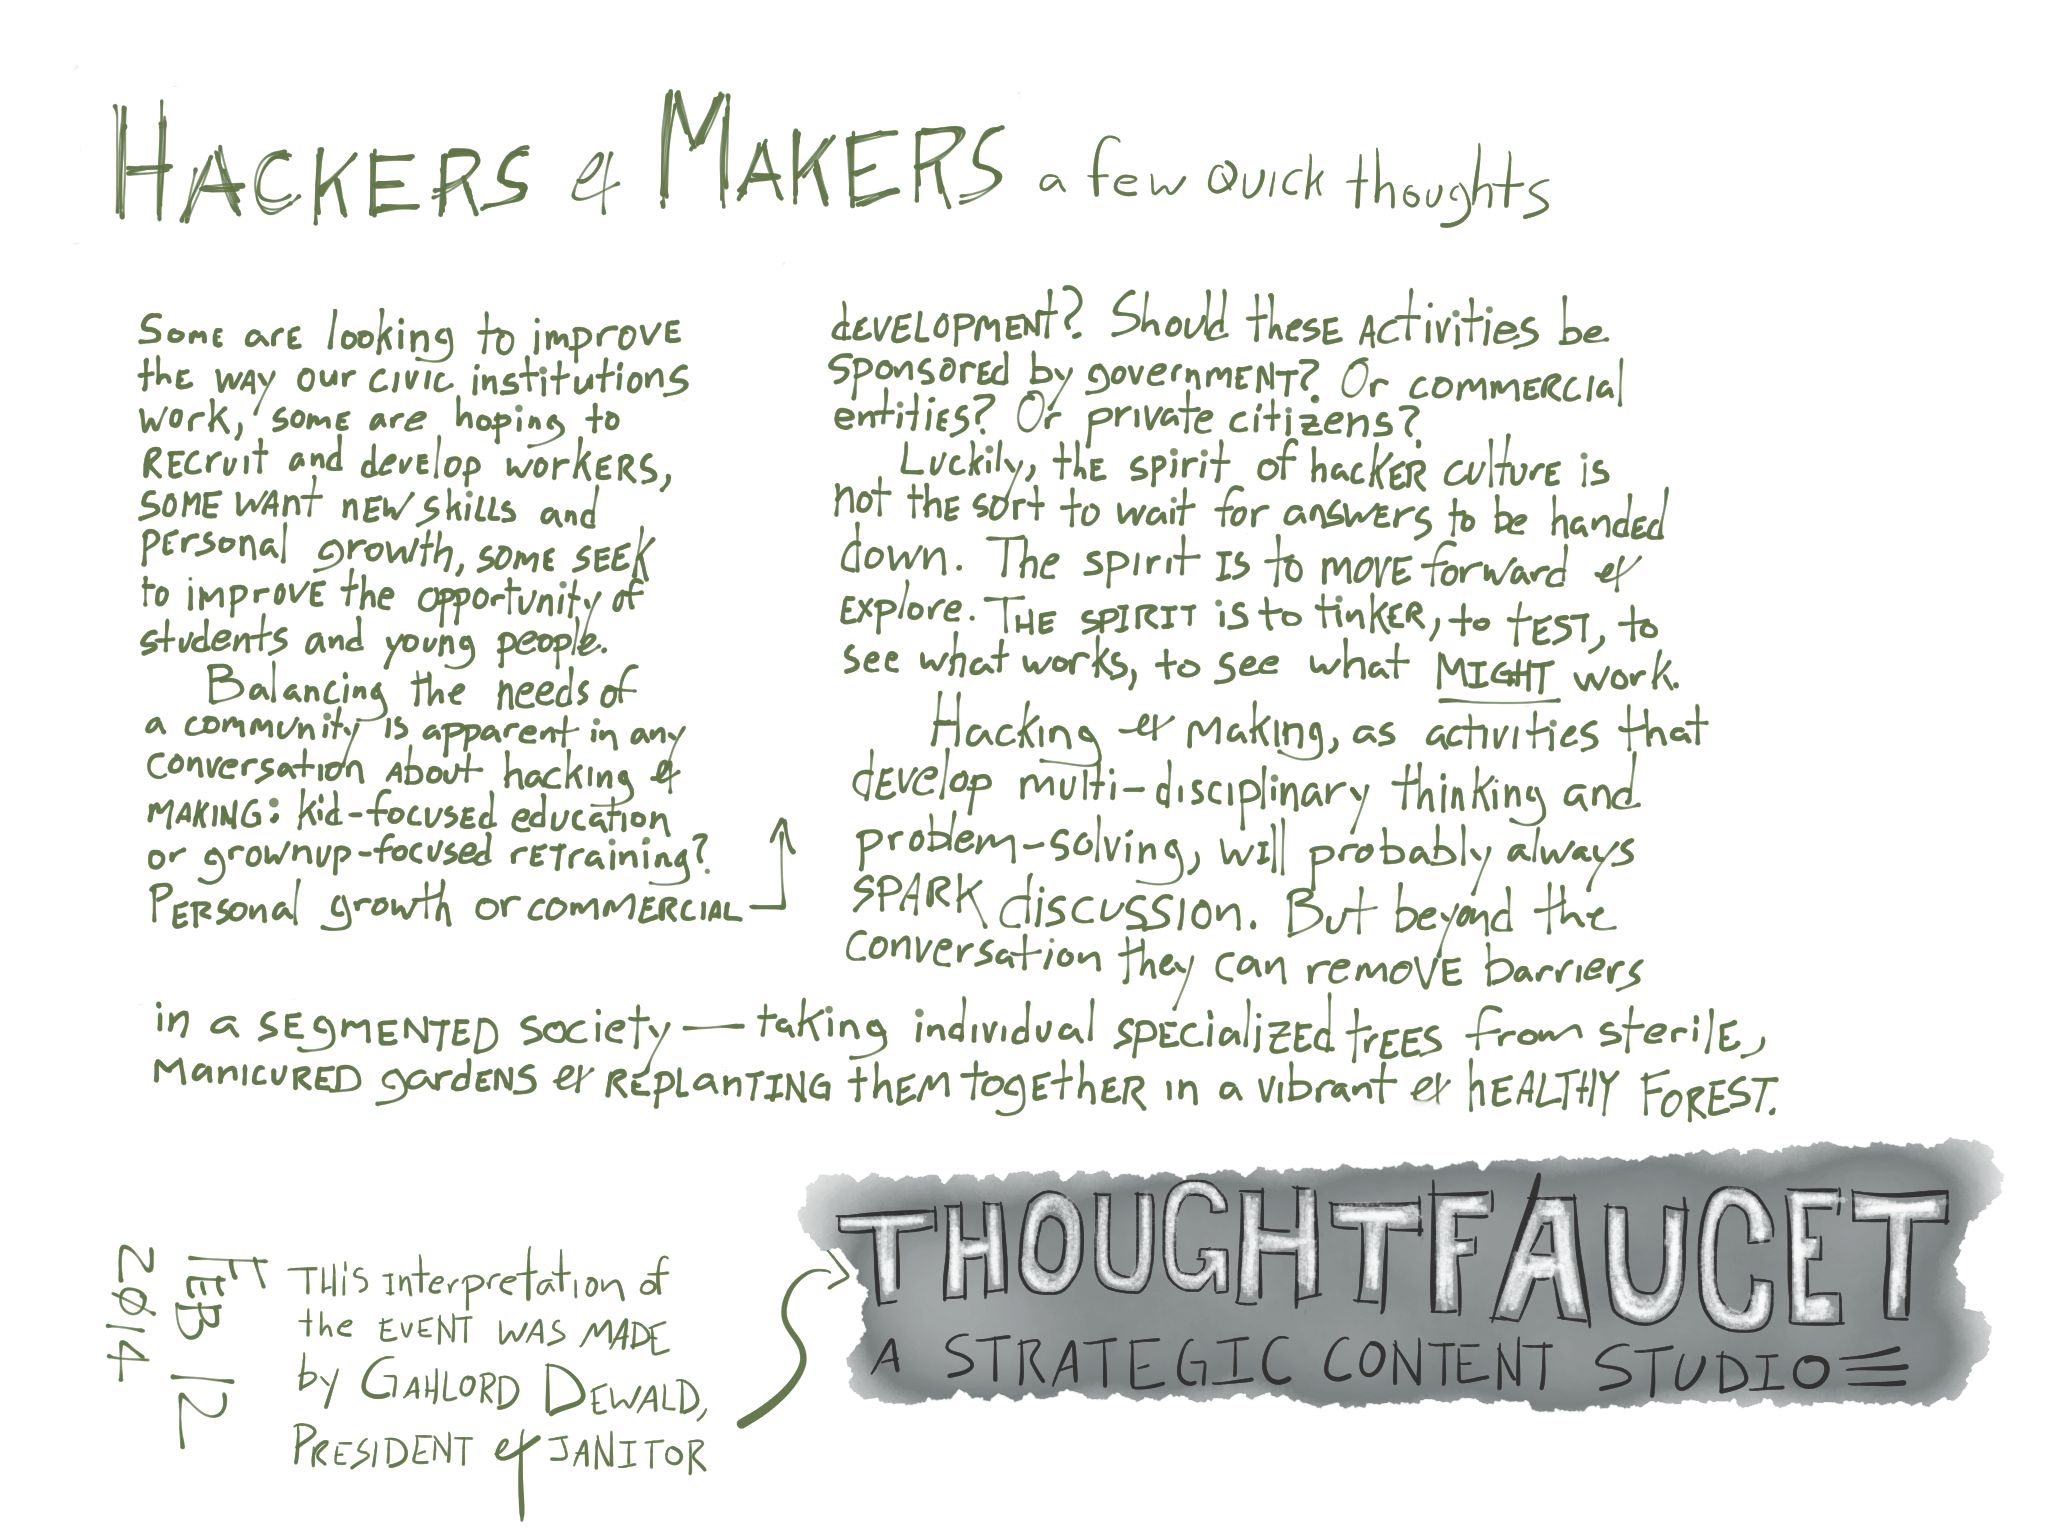 HACKERS & MAKERS a few QUICK thoughts
Some are looking to improve
the way our civic institutions
work, some are hoping to
recruit and develop workers,
some want new skills and
personal growth, some seek
to improve the opportunity of
students and young people.
Balancing the needs of
a community is apparent in any
conversation about hacking &
making: kid-focused education
or grownup-focused retraining?
Personal growth or commercial
development? Should these activities be
sponsored by government? Or commercial
entities? Or private citizens?
Luckily, the spirit of hacker culture is
not the sort to wait for answers to be handed
down. The spirit is to move forward &
explore. The spirit is to tinker, to test, to
see what works, to see what MIGHT work.
Hacking & Making, as activities that
develop multi-disciplinary thinking and
problem-solving, will probably always
spark discussion. But beyond the
conversation they can remove barriers
in a segmented society — taking individual specialized trees from sterile,
manicured gardens & replanting them together in a vibrant & healthy forest.
FEB 12
2014
This interpretation of
the event was made
by Gahlord Dewald,
President & Janitor
THOUGHTFAUCET
A STRATEGIC CONTENT STUDIO